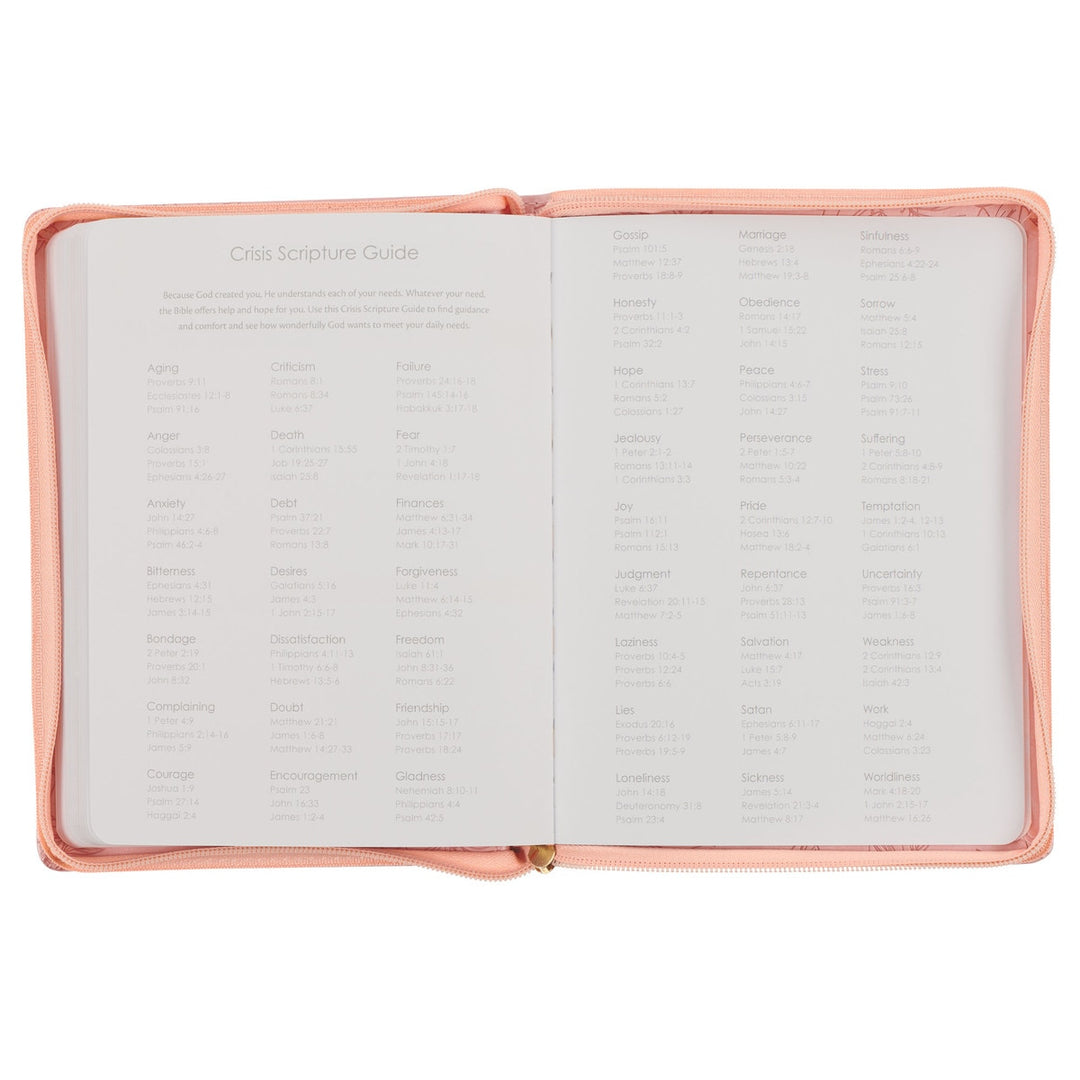 Crisis Scripture Guide
Because God created you, He understands each of your needs. Whatever your need,
the Bible offers help and hope for you. Use this Crisis Scripture Guide to find guidance
and comfort and see how wonderfully God wants to meet your daily needs.
Aging
Proverbs 9:11
Ecclesiastes 12:1-8
Psalm 91:16
Anger
Colossians 3:8
Proverbs 15:1
Ephesians 4:26-27
Anxiety
John 14:27
Philippians 4:6-8
Psalm 46:2-4
Bitterness
Ephesians 4:31
Hebrews 12:15
James 3:14-15
Bondage
2 Peter 2:19
Proverbs 20:1
John 8:32
Complaining
1 Peter 4:9
Philippians 2:14-16
James 5:9
Courage
Joshua 1:9
Psalm 27:14
Haggai 2:4
Criticism
Romans 8:1
Romans 8:34
Luke 6:37
Death
1 Corinthians 15:55
Job 19:25-27
Isaiah 25:8
Debt
Psalm 37:21
Proverbs 22:7
Romans 13:8
Desires
Galatians 5:16
James 4:3
1 John 2:15-17
Dissatisfaction
Philippians 4:11-13
1 Timothy 6:6-8
Hebrews 13:5-6
Doubt
Matthew 21:21
James 1:6-8
Matthew 14:27-33
Encouragement
Psalm 23
John 16:33
James 1:2-4
Failure
Proverbs 24:16-18
Psalm 145:14-16
Habakkuk 3:17-18
Fear
2 Timothy 1:7
1 John 4:18
Revelation 1:17-18
Finances
Matthew 6:31-34
James 4:13-17
Mark 10:17-31
Forgiveness
Luke 11:4
Matthew 6:14-15
Ephesians 4:32
Freedom
Isaiah 61:1
John 8:31-36
Romans 6:22
Friendship
John 15:15-17
Proverbs 17:17
Proverbs 18:24
Gladness
Nehemiah 8:10-11
Philippians 4:4
Psalm 42:5
Gossip
Psalm 101:5
Matthew 12:37
Proverbs 18:8-9
Honesty
Proverbs 11:1-3
2 Corinthians 4:2
Psalm 32:2
Hope
1 Corinthians 13:7
Romans 5:2
Colossians 1:27
Jealousy
1 Peter 2:1-2
Romans 13:11-14
1 Corinthians 3:3
Joy
Psalm 16:11
Psalm 112:1
Romans 15:13
Judgment
Luke 6:37
Revelation 20:11-15
Matthew 7:2-5
Laziness
Proverbs 10:4-5
Proverbs 12:24
Proverbs 6:6
Lies
Exodus 20:16
Proverbs 6:12-19
Proverbs 19:5-9
Loneliness
John 14:18
Deuteronomy 31:8
Psalm 23:4
Marriage
Genesis 2:18
Hebrews 13:4
Matthew 19:3-8
Obedience
Romans 14:17
1 Samuel 15:22
John 14:15
Peace
Philippians 4:6-7
Colossians 3:15
John 14:27
Perseverance
2 Peter 1:5-7
Matthew 10:22
Romans 5:3-4
Pride
2 Corinthians 12:7-10
Hosea 13:6
Matthew 18:2-4
Repentance
John 6:37
Proverbs 28:13
Psalm 51:11-13
Salvation
Matthew 4:17
Luke 15:7
Acts 3:19
Satan
Ephesians 6:11-17
1 Peter 5:8-9
James 4:7
Sickness
James 5:14
Revelation 21:3-4
Matthew 8:17
Sinfulness
Romans 6:6-9
Ephesians 4:22-24
Psalm 25:6-8
Sorrow
Matthew 5:4
Isaiah 25:8
Romans 12:15
Stress
Psalm 9:10
Psalm 73:26
Psalm 91:7-11
Suffering
1 Peter 5:8-10
2 Corinthians 4:8-9
Romans 8:18-21
Temptation
James 1:2-4, 12-13
1 Corinthians 10:13
Galatians 6:1
Uncertainty
Proverbs 16:3
Psalm 91:3-7
James 1:6-8
Weakness
2 Corinthians 12:9
2 Corinthians 13:4
Isaiah 42:3
Work
Haggai 2:4
Matthew 6:24
Colossians 3:23
Worldliness
Mark 4:18-20
1 John 2:15-17
Matthew 16:26